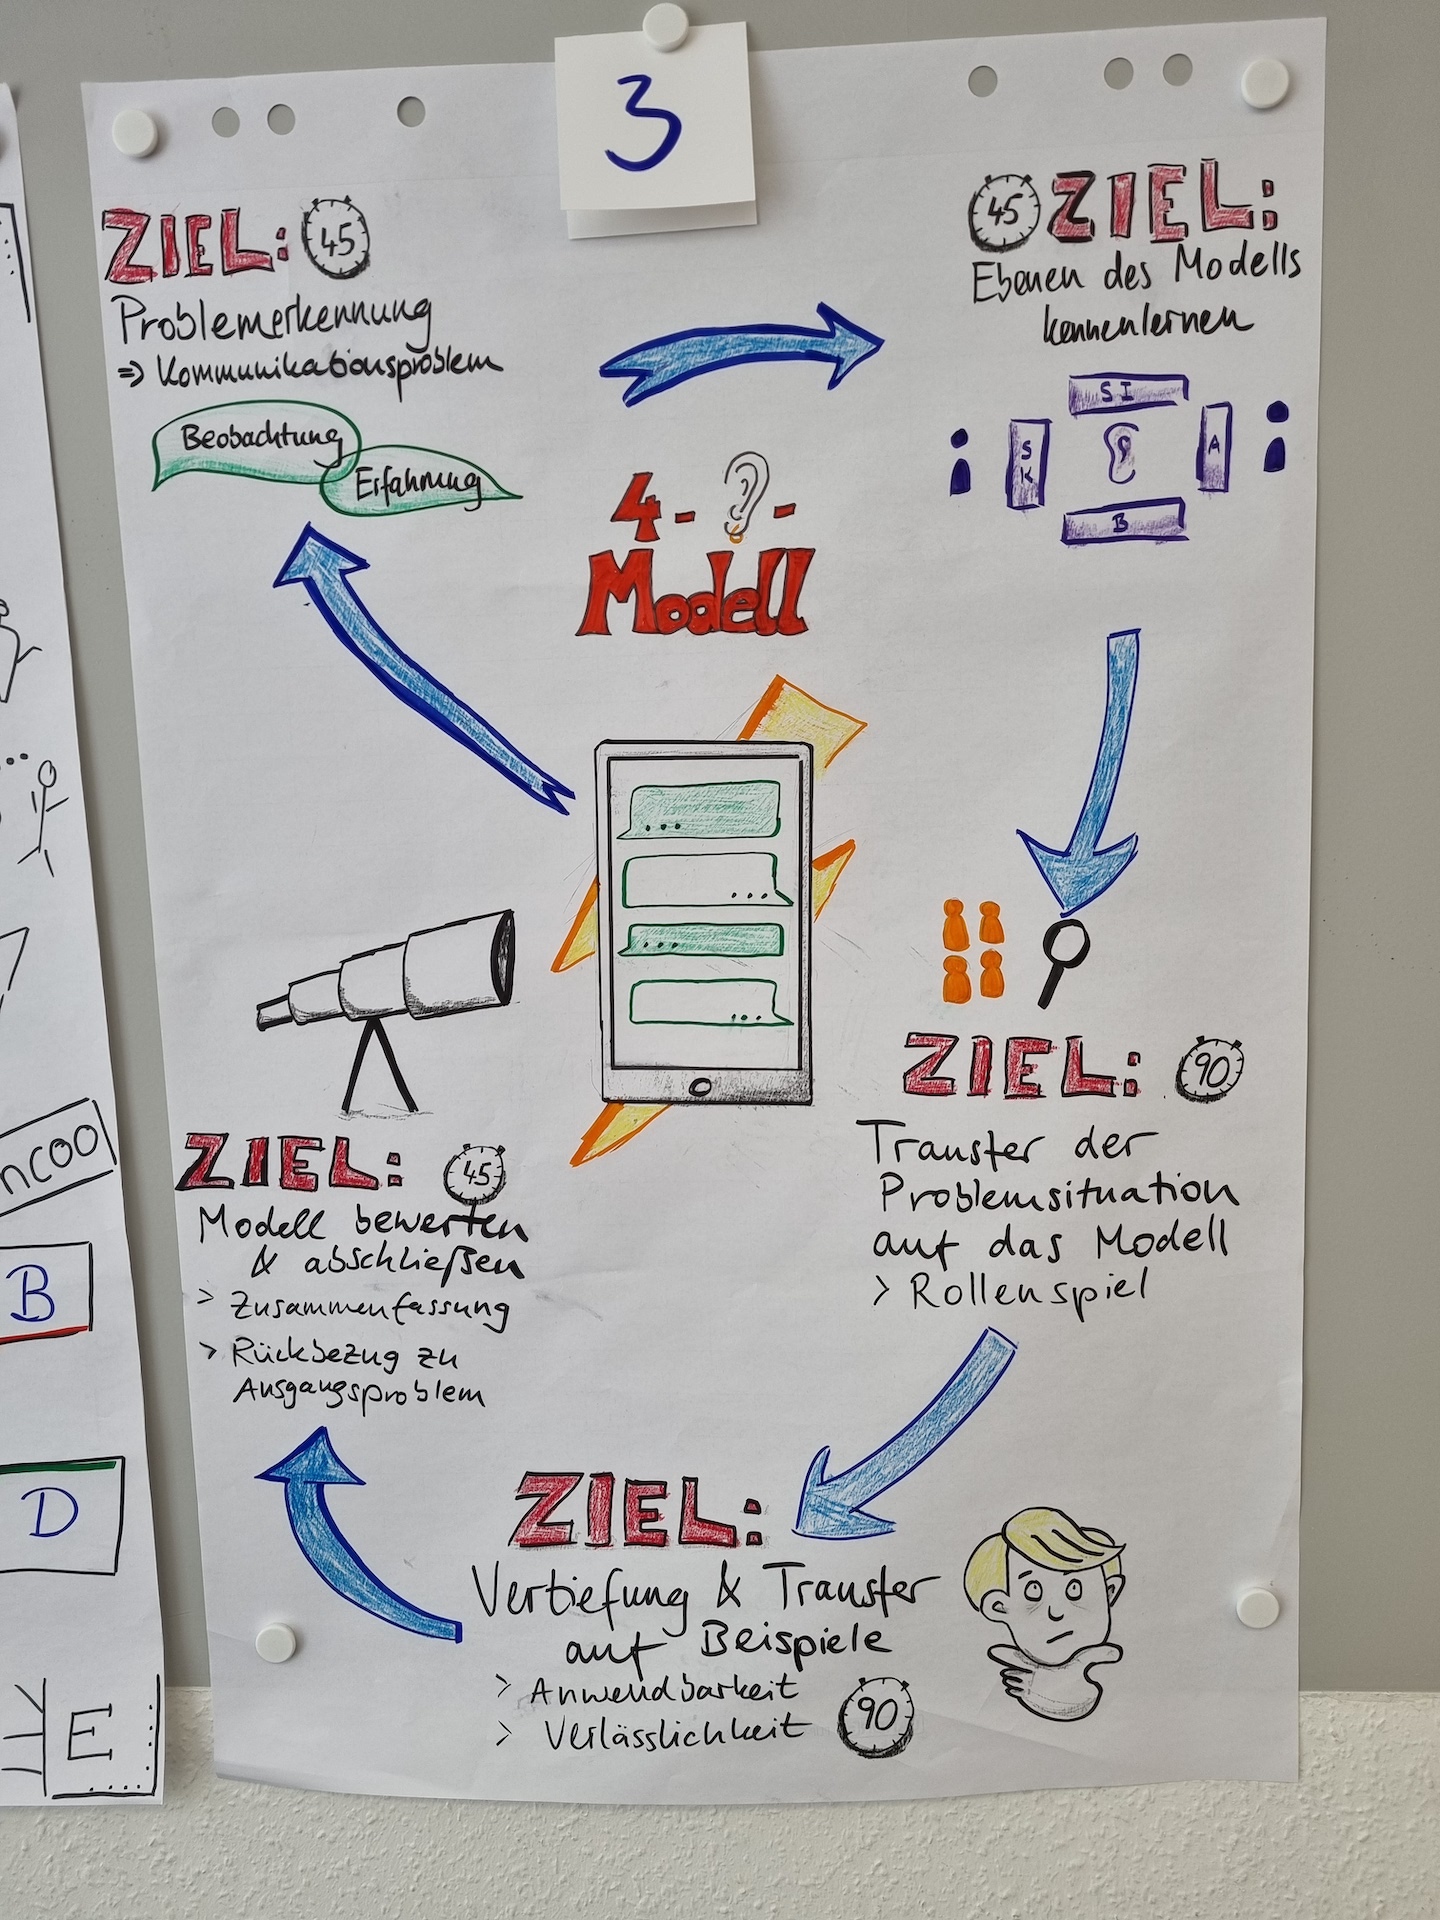 3
ZIEL: 45
Problemerkennung
=> Kommunikationsproblem
Beobachtung
Erfahrung
45 ZIEL:
Ebenen des Modells
kennenlernen
SI
SK
A
B
4- -
Modell
ZIEL: 90
Transfer der
Problemsituation
auf das Modell
> Rollenspiel
ZIEL:
Vertiefung & Transfer
auf Beispiele
> Anwendbarkeit
> Verlässlichkeit
90
ZIEL: 45
Modell bewerten
& abschließen
> Zusammenfassung
> Rückbezug zu
Ausgangsproblem
B
D
E